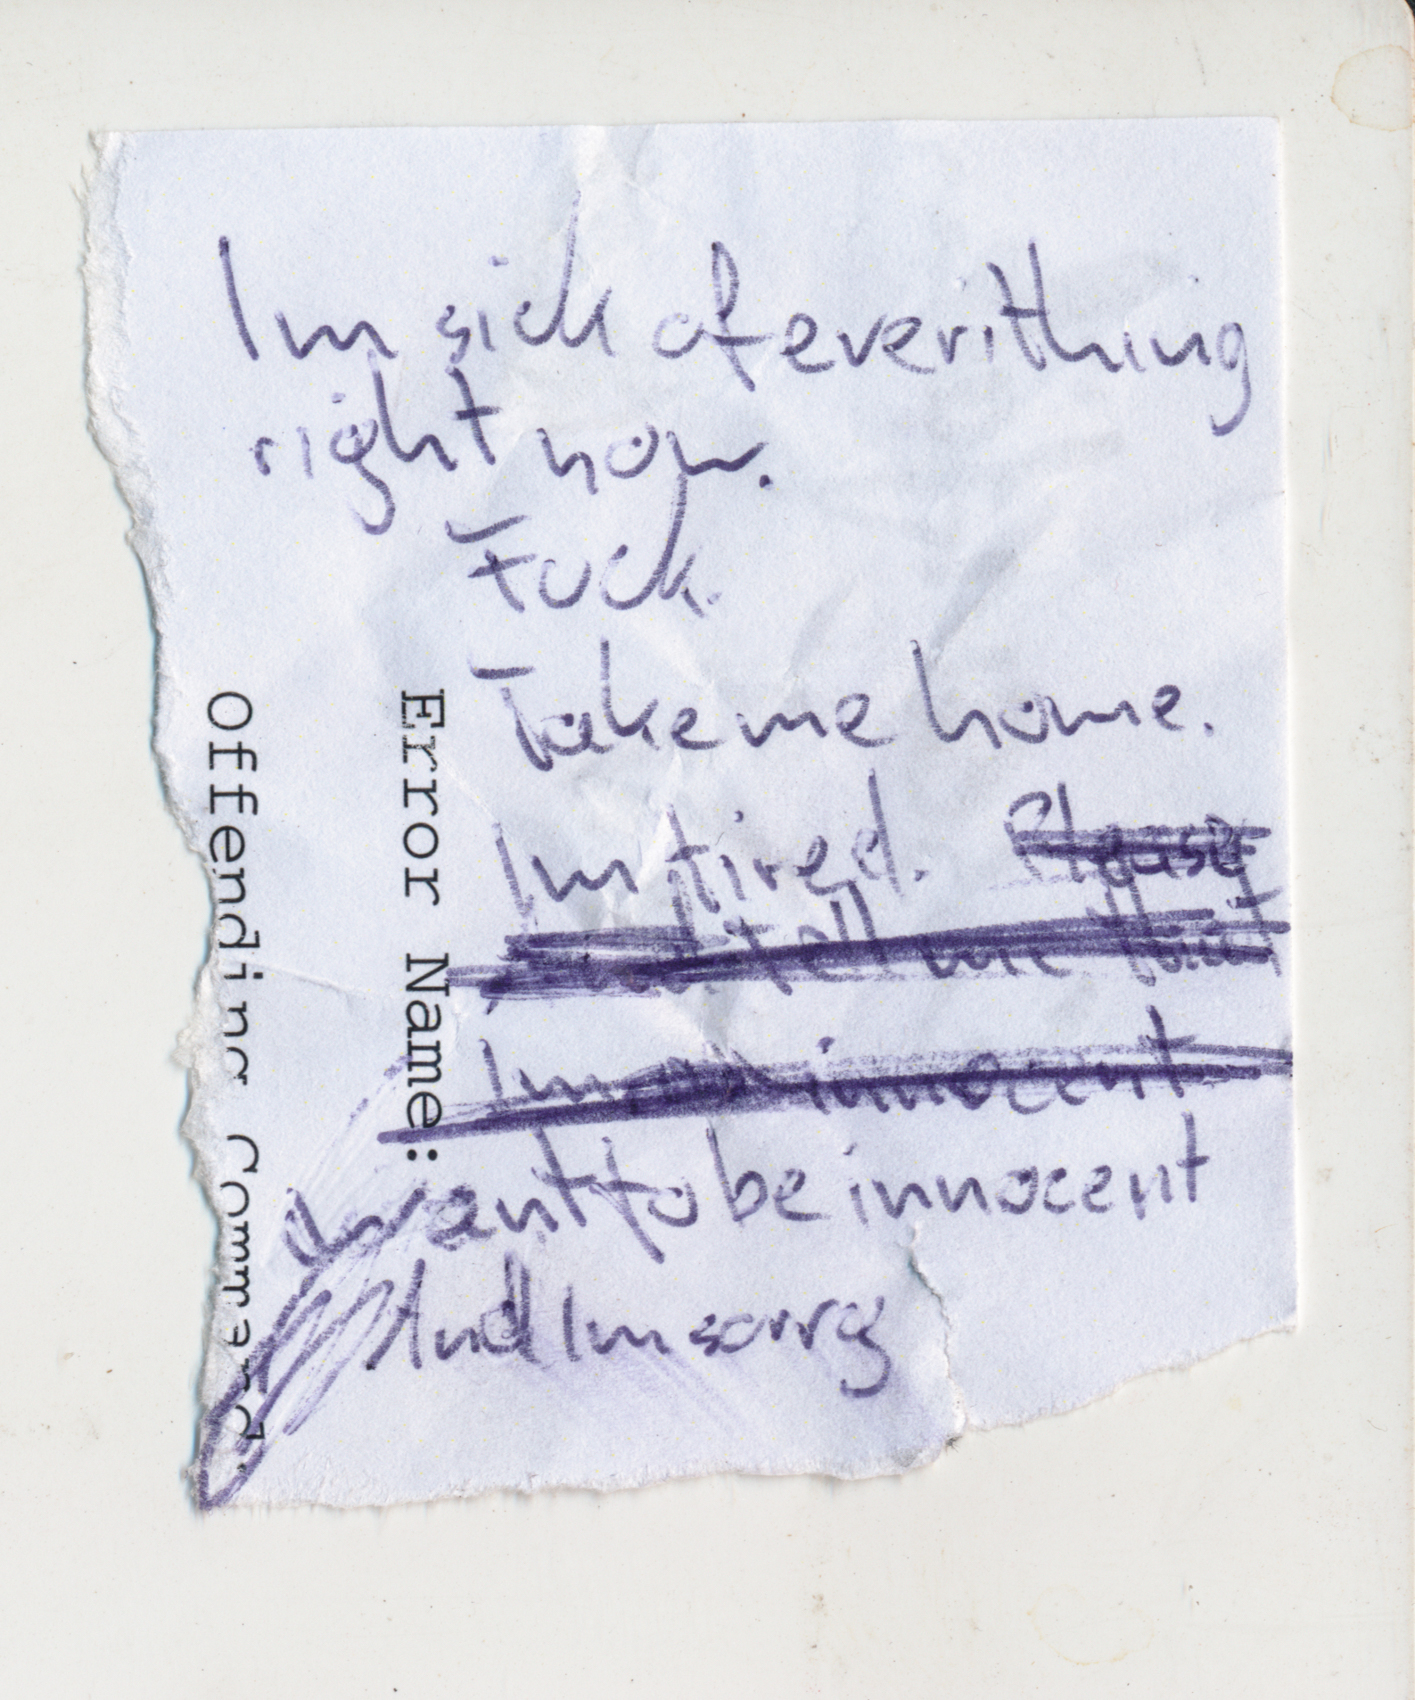 Im sick of everithing
right now.
Fuck.
Take me home.
Im tired. Please
tell me
Im innocent
I want to be innocent
And Im sorry
Error Name:
Offending Command: